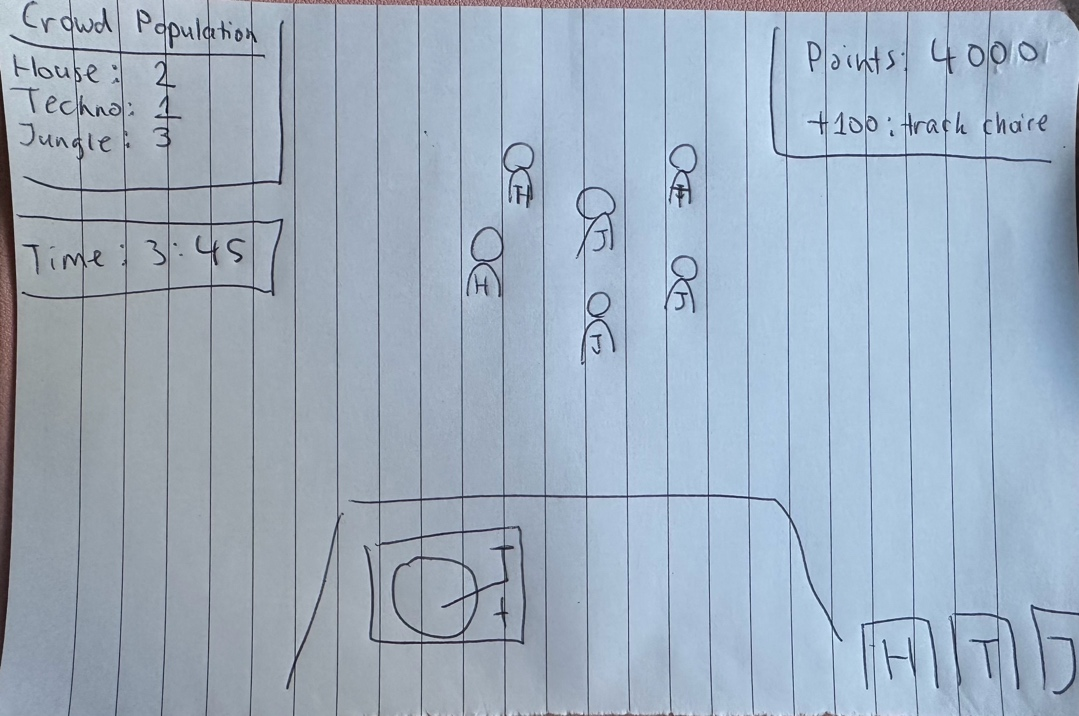 Crowd Population
House: 2
Techno: 1
Jungle: 3
Time: 3:45
Points: 4000
+100: track choice
H
J
H
J
J
H T J